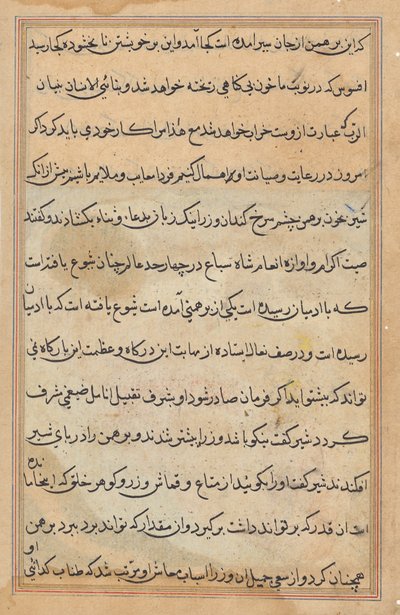 که این برهمن از جان سیر آمده است کجا آمد و این بر خویشتن نابخشوده کجا رسید
افسوس که در نوبت ما خون بی کناهی ریخته خواهد شد و بنائی الانسان بنیان
الرب که عبارت ازوست خراب خواهد شد مع هذا مرا کار خود می باید کرد اکر
امروز در رعایت و صیانت او اهمال کنیم فردا معایب و ملام باشیم پیش از انک
شیر خون برهمن چشم سرخ کند ان وزرا نیک زبان بدعا و ثنا بکشادند و کفتند
صیت اکرام و اوازه انعام شاه سباع در چهار حد عالم چنان شیوع یافته است
که با ادمیان رسیده است یکی از برهمنی آمده است شیوع یافته است که با ادمیان
رسیده است و در صف نعال ایستاده از مهابت این درکاه و عظمت این بارکاه نمی
تواند که پیشتر اید اکر فرمان صادر شود او بشرف تقبیل انامل ضیغمی مشرف
کردد شیر کفت نیکو باشد وزرا پیشتر شدند و برهمن را در پای شیر
افکندند شیر کفت او را بکویید از متاع و قماش و زر و کوهر خلق که اینجا مانده
است ان قدر که بر تواند داشت برکیرد و ان مقدار که تواند برد ببرد برهمن
همچنان کرد و از سعی جمیل ان وزرا اسباب معاش او مرتب شد که طناب کدائی او